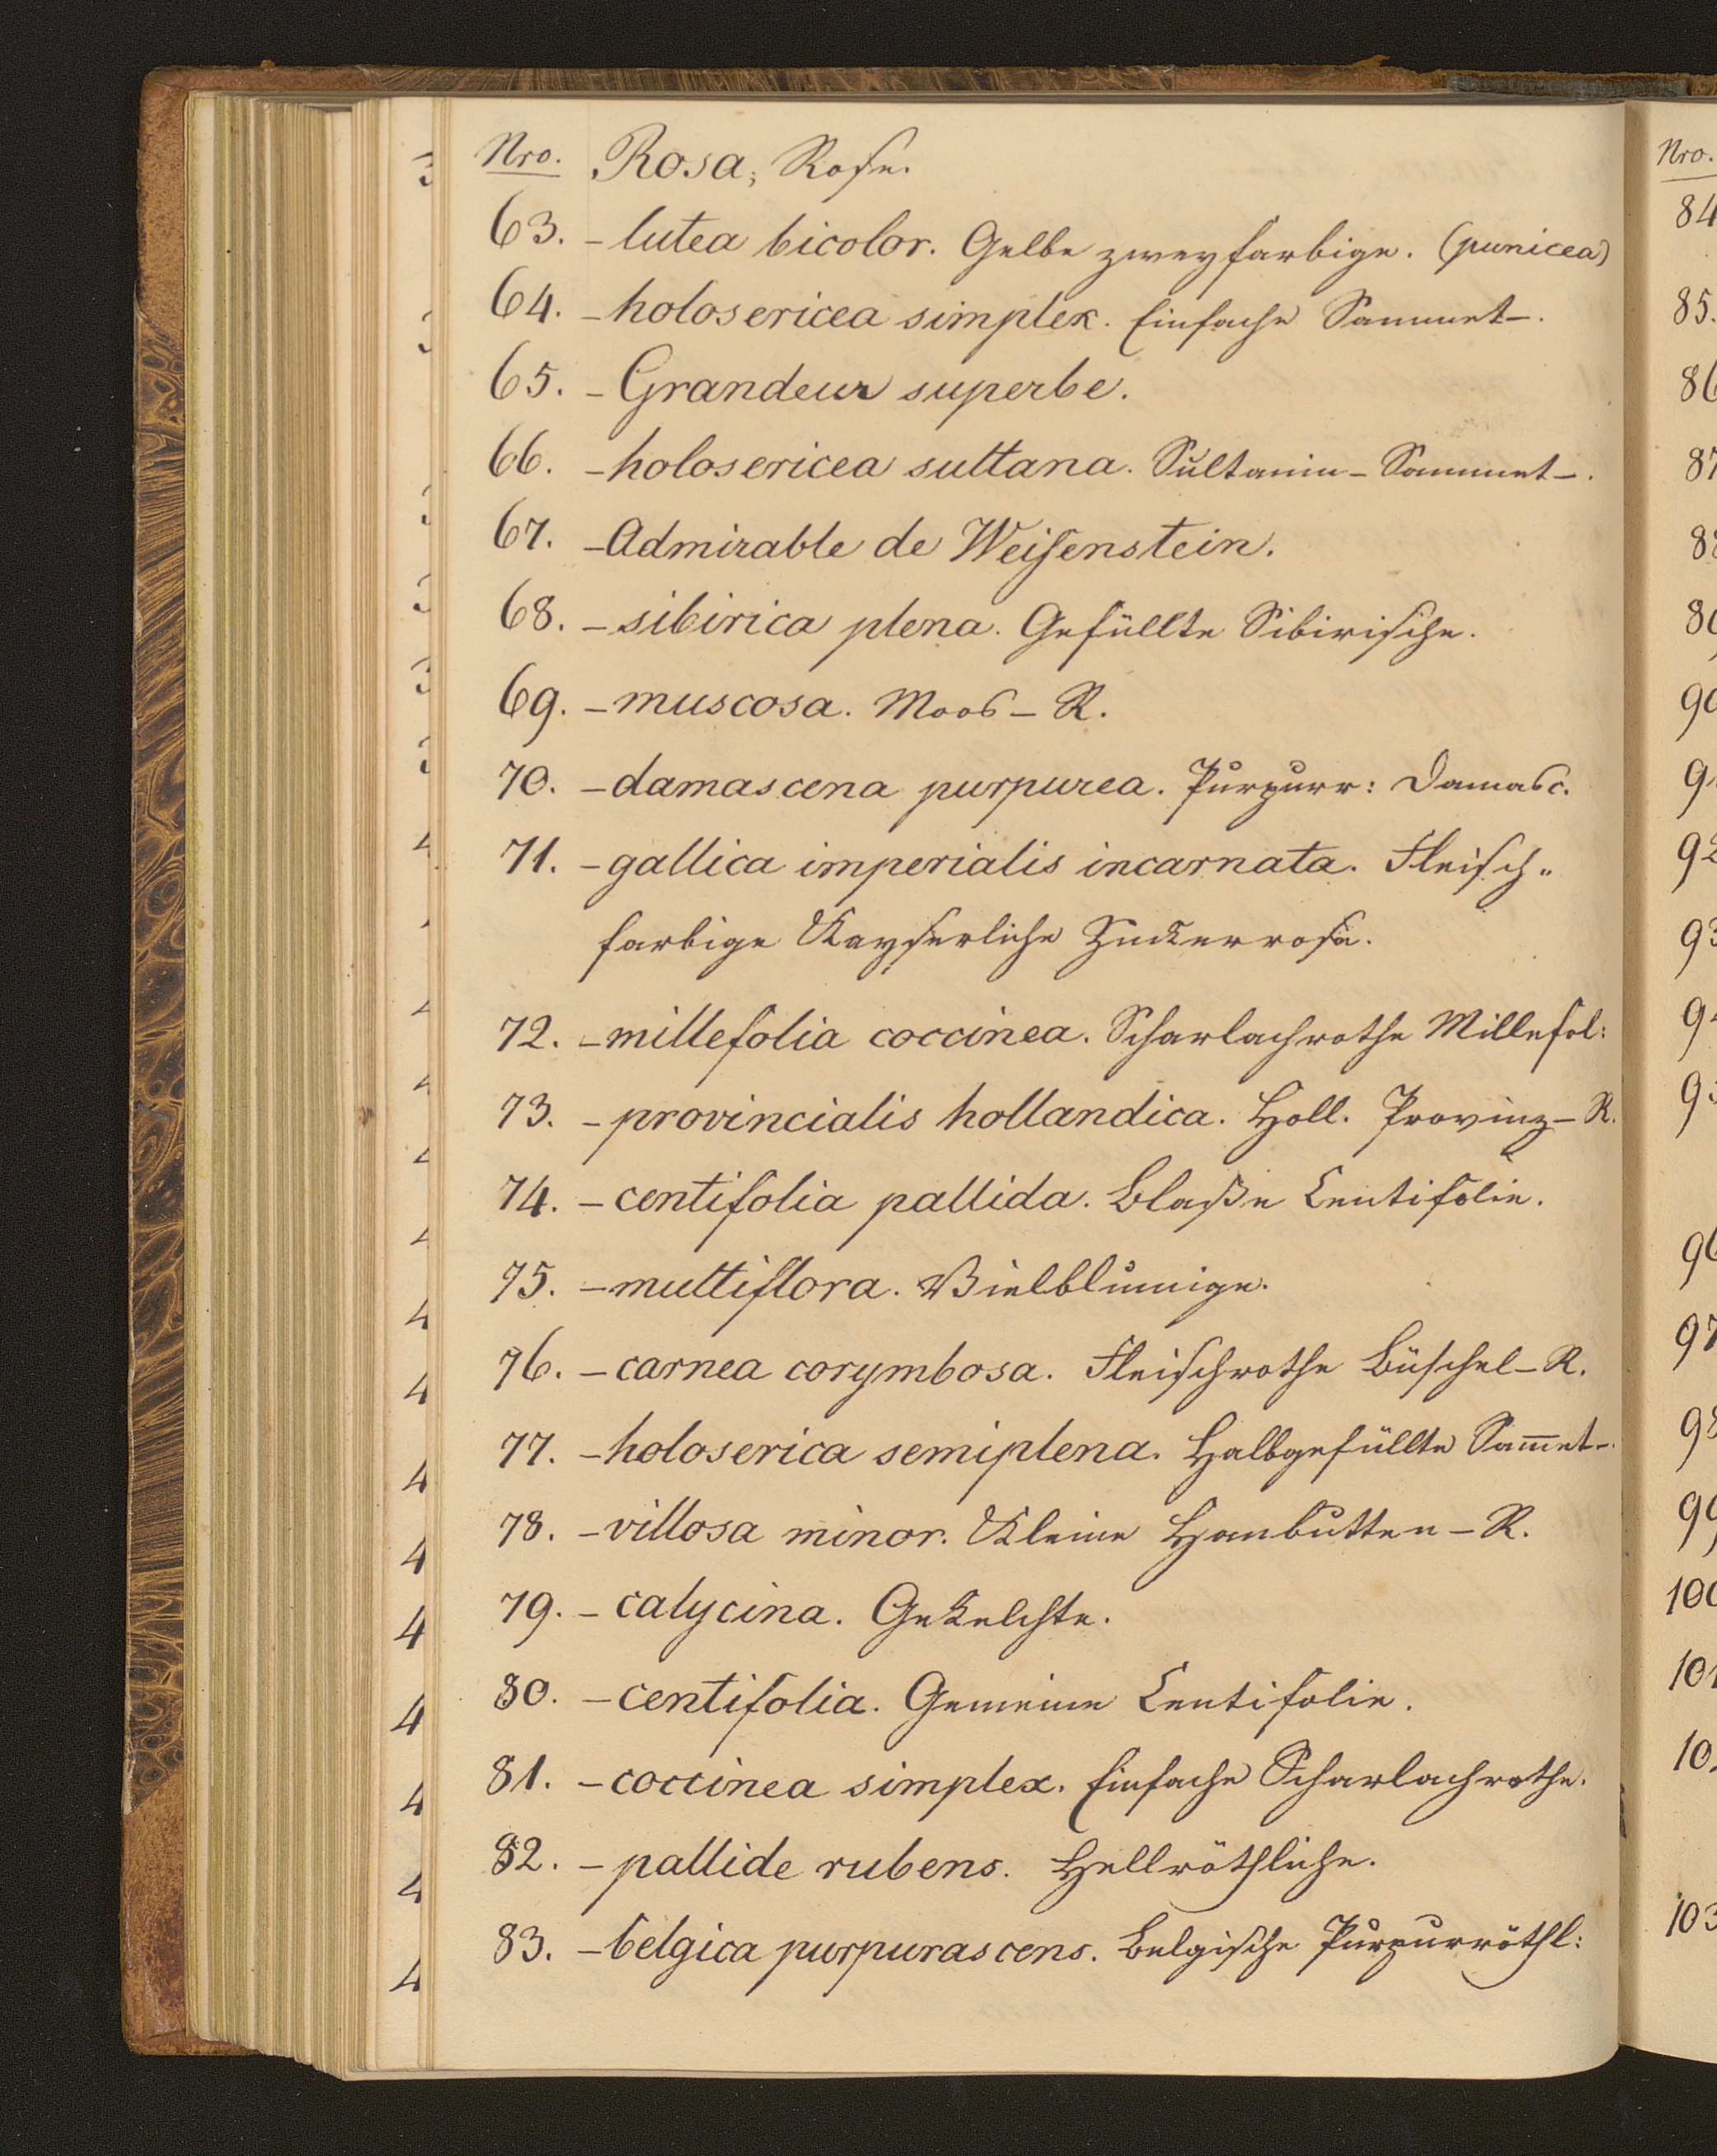 Nro. Rosa, Rose.
63. - lutea bicolor. Gelbe zweyfarbige. (punicea)
64. - holosericea simplex. Einfache Sammet-.
65. - Grandeur superbe.
66. - holosericea sultana. Sultanin-Sammet-.
67. - Admirable de Weisenstein.
68. - sibirica plena. Gefüllte Sibirische.
69. - muscosa. Moos-R.
70. - damascena purpurea. Purpurr: Damasc.
71. - gallica imperialis incarnata. Fleisch„
farbige Kayserliche Zuckerrose.
72. - millefolia coccinea. Scharlachrothe Millefol:
73. - provincialis hollandica. Holl. Provinz-R.
74. - centifolia pallida. Blaße Centifolie.
75. - multiflora. Vielblumige.
76. - carnea corymbosa. Fleischrothe Büschel-R.
77. - holoserica semiplena. Halbgefüllte Sam̅et-.
78. - villosa minor. Kleine Hanbutten-R.
79. - calycina. Gekelchte.
80. - centifolia. Gemeine Centifolie.
81. - coccinea simplex. Einfache Scharlachrothe.
82. - pallide rubens. Hellröthliche.
83. - belgica purpurascens. Belgische Purpurröthl:
Nro.
84
85.
86
87
88
89
90
92
93
96
97
98
99
100
101
103